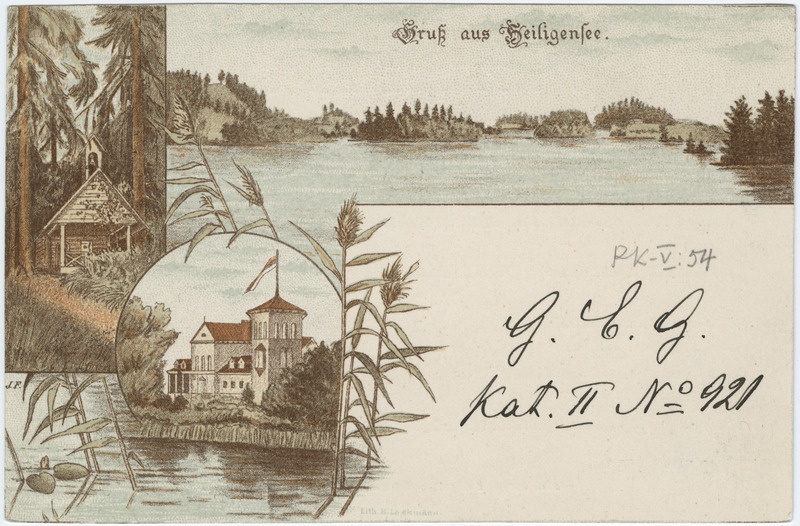 Gruß aus Heiligensee.
RK-V:54
G. E. G.
Kat. II No 921
J.F.